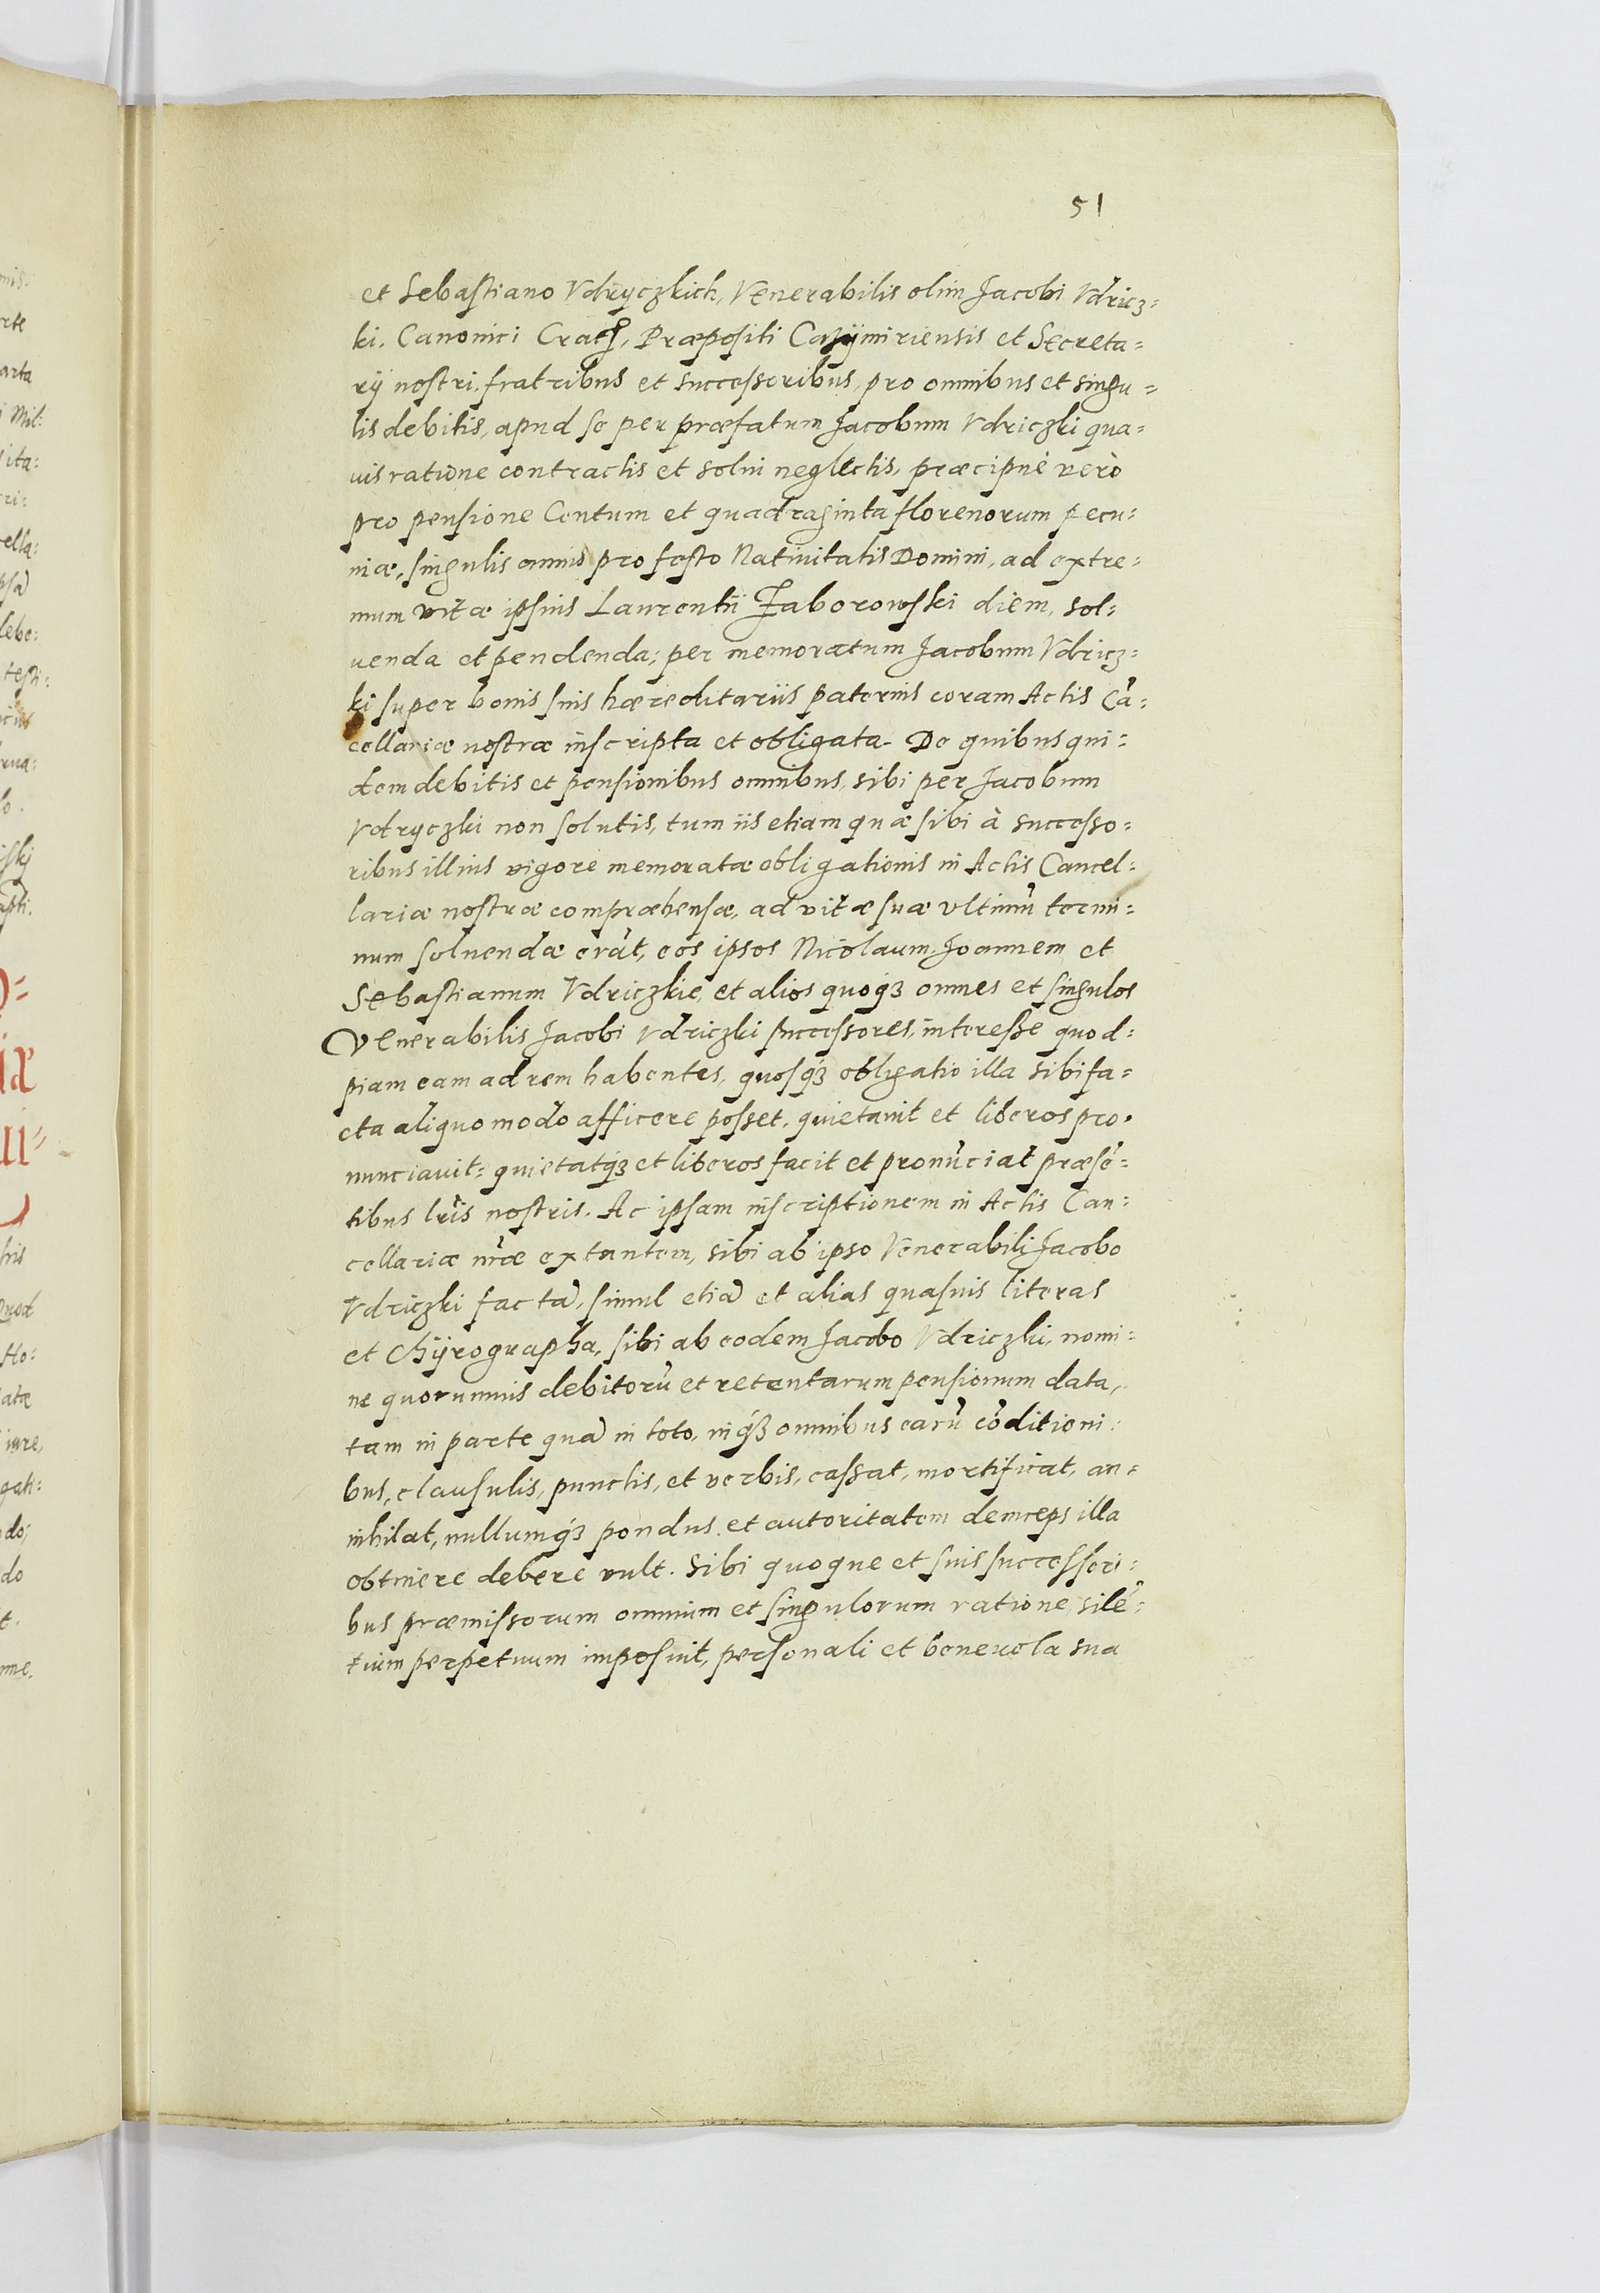 51
et Sebastiano Vdryczkich, Venerabilis olim Jacobi Vdricz=
ki, Canonici Crac̃, Præpositi Cazÿmiriensis et Secreta=
rÿ nostri, fratribus et successoribus, pro omnibus et singu=
lis debitis, apud se per præfatum Jacobum Vdriczki qua=
uis ratione contractis et solui neglectis, præcipuè verò
pro pensione Centum et quadraginta florenorum pecu=
niæ, singulis annis pro festo Natiuitatis Domini, ad extre=
mum vitæ ipsius Laurentii Zaborowski diem, sol=
uenda et pendenda; per memoratum Jacobum Vdricz=
ki super bonis suis hæreditariis paternis coram Actis Cã=
cellariæ nostræ inscripta et obligata. De quibus qui=
dem debitis et pensionibus omnibus, sibi per Jacobum
Vdryczki non solutis, tum iis etiam quæ sibi à successo=
ribus illius vigore memoratæ obligationis in Actis Cancel=
lariæ nostræ compræhensæ, ad vitæ suæ vltimũ termi=
num soluendæ erãt, eos ipsos Nicolaum, Joannem et
Sebastianum Vdriczkie, et alios quoqȝ omnes et singulos
Venerabilis Jacobi Vdriczki successores, interesse quod=
piam eam ad rem habentes, quosqȝ obligatio illa sibi fa=
cta aliquo modo afficere posset, quietauit et liberos pro=
nunciauit= quietatqȝ et liberos facit et pronũciat præsẽ=
tibus lr̃is nostris. Ac ipsam inscriptionem in Actis Can=
cellariæ nr̃æ extantem, sibi ab ipso Venerabili Jacobo
Vdriczki factã, simul etiã et alias quasuis literas
et Chÿrographa, sibi ab eodem Jacobo Vdriczki, nomi=
ne quorumuis debitorũ et retentarum pensionum data,
tam in parte quã in toto, inqȝ omnibus earũ cõditioni=
bus, clausulis, punctis, et verbis, cassat, mortificat, an=
nihilat, nullumqȝ pondus et autoritatem deinceps illa
obtinere debere vult. Sibi quoque et suis successori=
bus præmissorum omnium et singulorum ratione, silẽ=
tium perpetuum imposuit, personali et beneuola sua